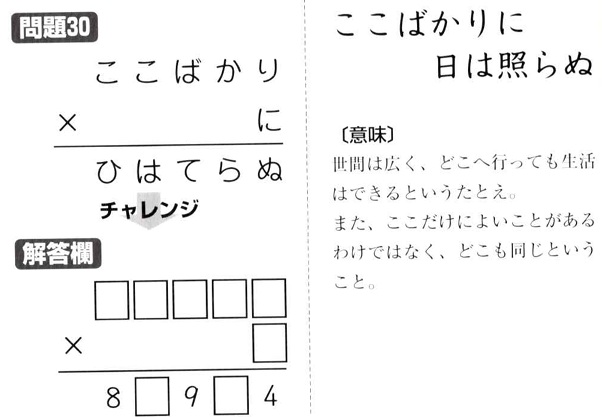 問題30
ここばかり
× に
ひはてらぬ
チャレンジ
解答欄
□□□□□
× □
8□9□4
ここばかりに
日は照らぬ
〔意味〕
世間は広く、どこへ行っても生活
はできるというたとえ。
また、ここだけによいことがある
わけではなく、どこも同じという
こと。